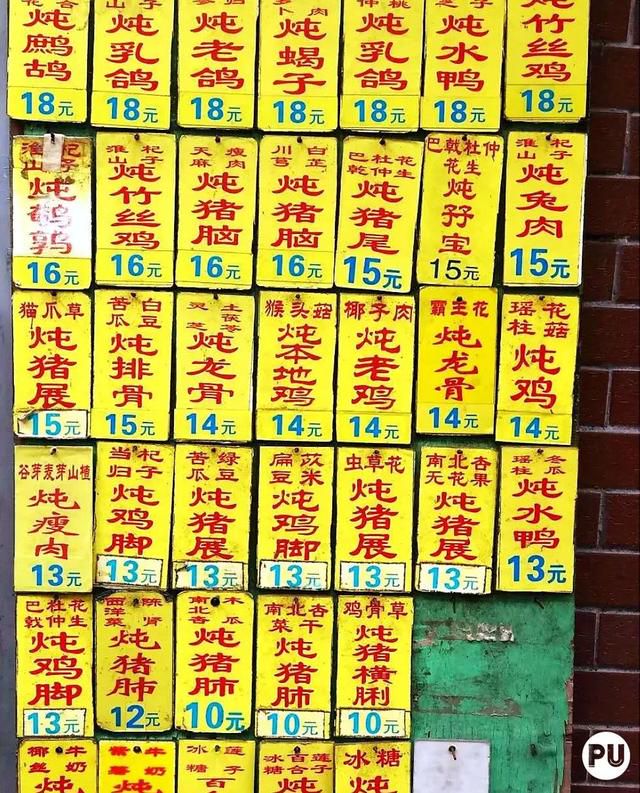 炖鹧鸪
18元
炖乳鸽
18元
炖老鸽
18元
炖蝎子
18元
炖乳鸽
18元
炖水鸭
18元
炖竹丝鸡
18元
淮山 杞子
炖鹌鹑
16元
淮山 杞子
炖竹丝鸡
16元
天麻 瘦肉
炖猪脑
16元
川芎 白芷
炖猪脑
16元
巴戟杜仲花生
炖猪尾
15元
巴戟杜仲花生
炖孖宝
15元
淮山 杞子
炖兔肉
15元
猫爪草
炖猪展
15元
苦瓜 白豆
炖排骨
15元
灵芝 土茯苓
炖龙骨
14元
猴头菇
炖本地鸡
14元
椰子肉
炖老鸡
14元
霸王花
炖龙骨
14元
瑶柱 花菇
炖鸡
14元
谷芽麦芽山楂
炖瘦肉
13元
当归 杞子
炖鸡脚
13元
苦瓜 绿豆
炖猪展
13元
扁豆 苡米
炖鸡脚
13元
虫草花
炖猪展
13元
南北杏无花果
炖猪展
13元
瑶柱 冬瓜
炖水鸭
13元
巴戟杜仲花生
炖鸡脚
13元
西洋菜 陈肾
炖猪肺
12元
南北杏 木瓜
炖猪肺
10元
南北杏菜干
炖猪肺
10元
鸡骨草
炖猪横脷
10元
椰丝 牛奶
炖
牛奶
炖
冰糖 莲子
冰糖 百合 莲子
炖
冰糖
炖
PU